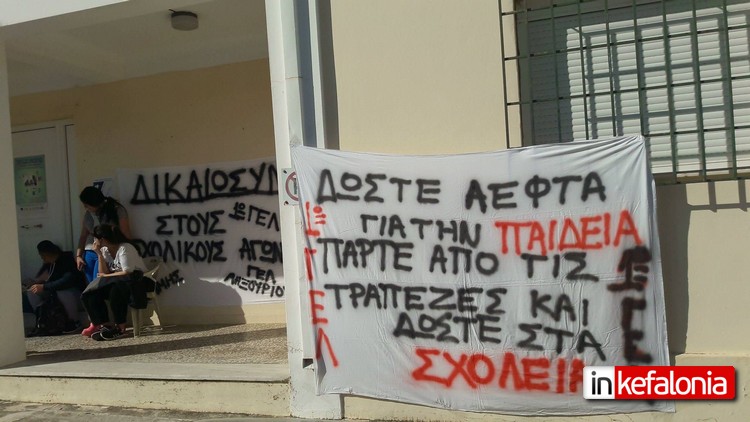 ΔΙΚΑΙΟΣΥΝ
ΣΤΟΥΣ 1ο ΓΕΛ
ΣΧΟΛΙΚΟΥΣ ΑΓΩΝ
ΓΕΛ
ΛΗΞΟΥΡΙΟΥ
ΔΩΣΤΕ ΛΕΦΤΑ
ΓΙΑ ΤΗΝ ΠΑΙΔΕΙΑ
ΠΑΡΤΕ ΑΠΟ ΤΙΣ
ΤΡΑΠΕΖΕΣ ΚΑΙ
ΔΩΣΤΕ ΣΤΑ
ΣΧΟΛΕΙΑ
inkefalonia